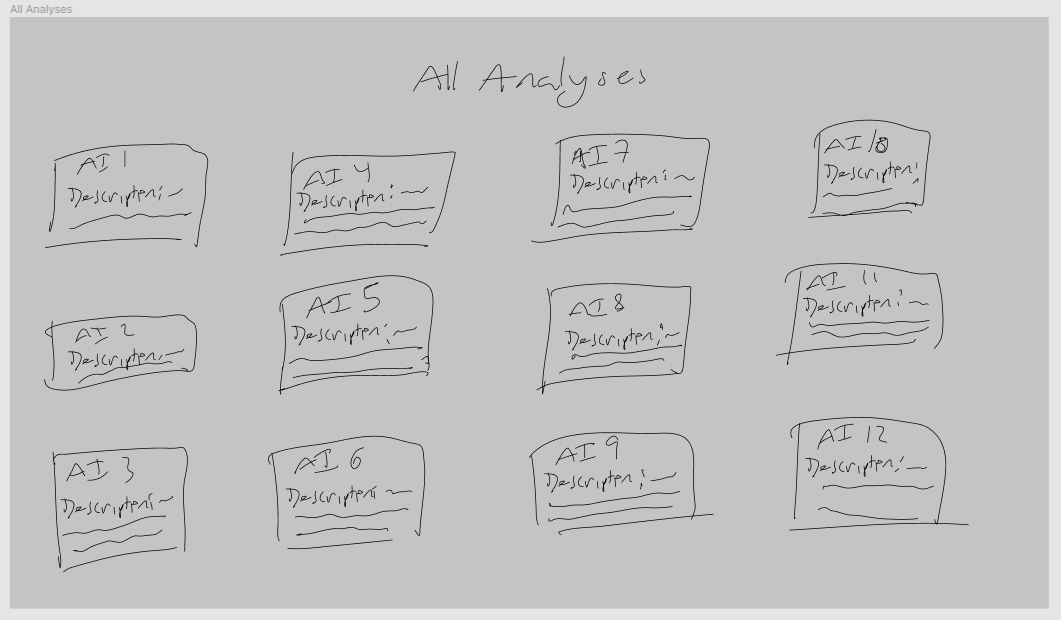 All Analyses
All Analyses
AI 1
Description: ~
AI 2
Description: ~
AI 3
Description: ~
AI 4
Description: ~
AI 5
Description: ~
AI 6
Description: ~
AI 7
Description: ~
AI 8
Description: ~
AI 9
Description: ~
AI 10
Description:
AI 11
Description: ~
AI 12
Description: ~